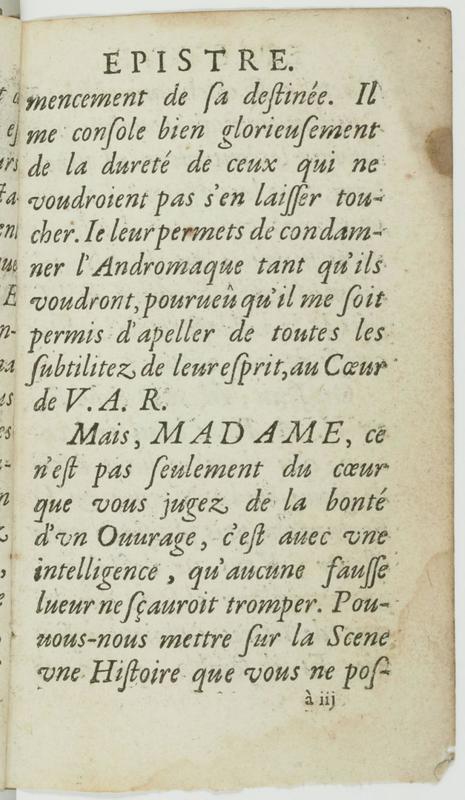 EPISTRE.
mencement de ſa deſtinée. Il
me conſole bien glorieuſement
de la dureté de ceux qui ne
voudroient pas s'en laiſſer tou-
cher. Ie leur permets de condam-
ner l'Andromaque tant qu'ils
voudront, pourueû qu'il me ſoit
permis d'apeller de toutes les
ſubtilitez de leur eſprit, au Cœur
de V. A. R.
Mais, MADAME, ce
n'eſt pas ſeulement du cœur
que vous jugez de la bonté
d'vn Ouurage, c'eſt auec vne
intelligence, qu'aucune fauſſe
lueur ne ſçauroit tromper. Pou-
uous-nous mettre ſur la Scene
vne Hiſtoire que vous ne poſ-
à iij